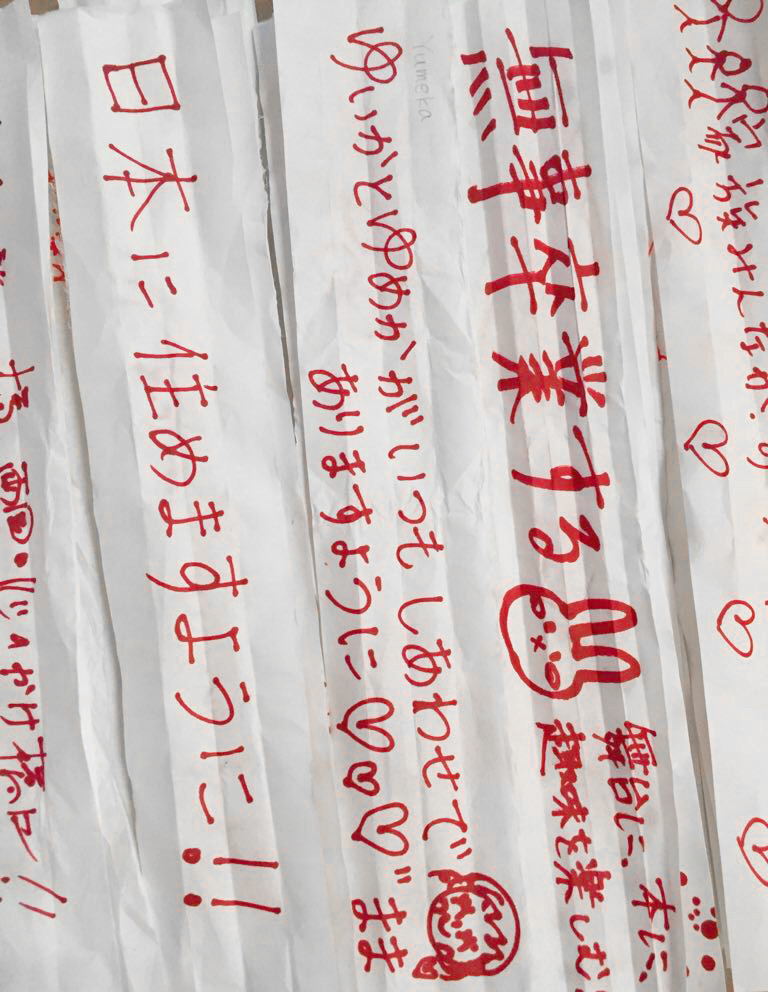 家族みんなが
無事卒業する
舞台に、本に、
趣味を楽しむ
Yumeka
ゆいかとゆめかがいつもしあわせで
ありますように♡♡♡" まま
日本に住めますように!!